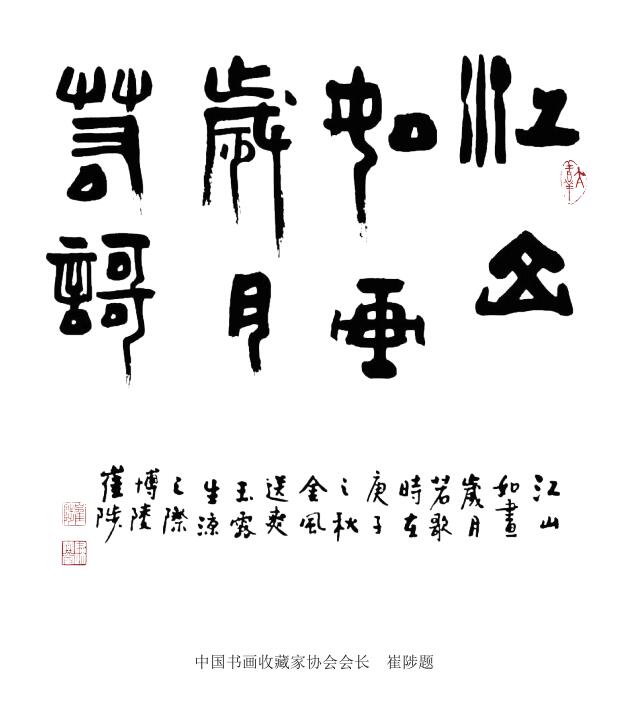 江山
如画
歲月
若謌
江山
如畫
歲月
若歌
時在
庚子
之秋
金風
送爽
玉露
生涼
之際
博陵
崔陟
中国书画收藏家协会会长 崔陟题